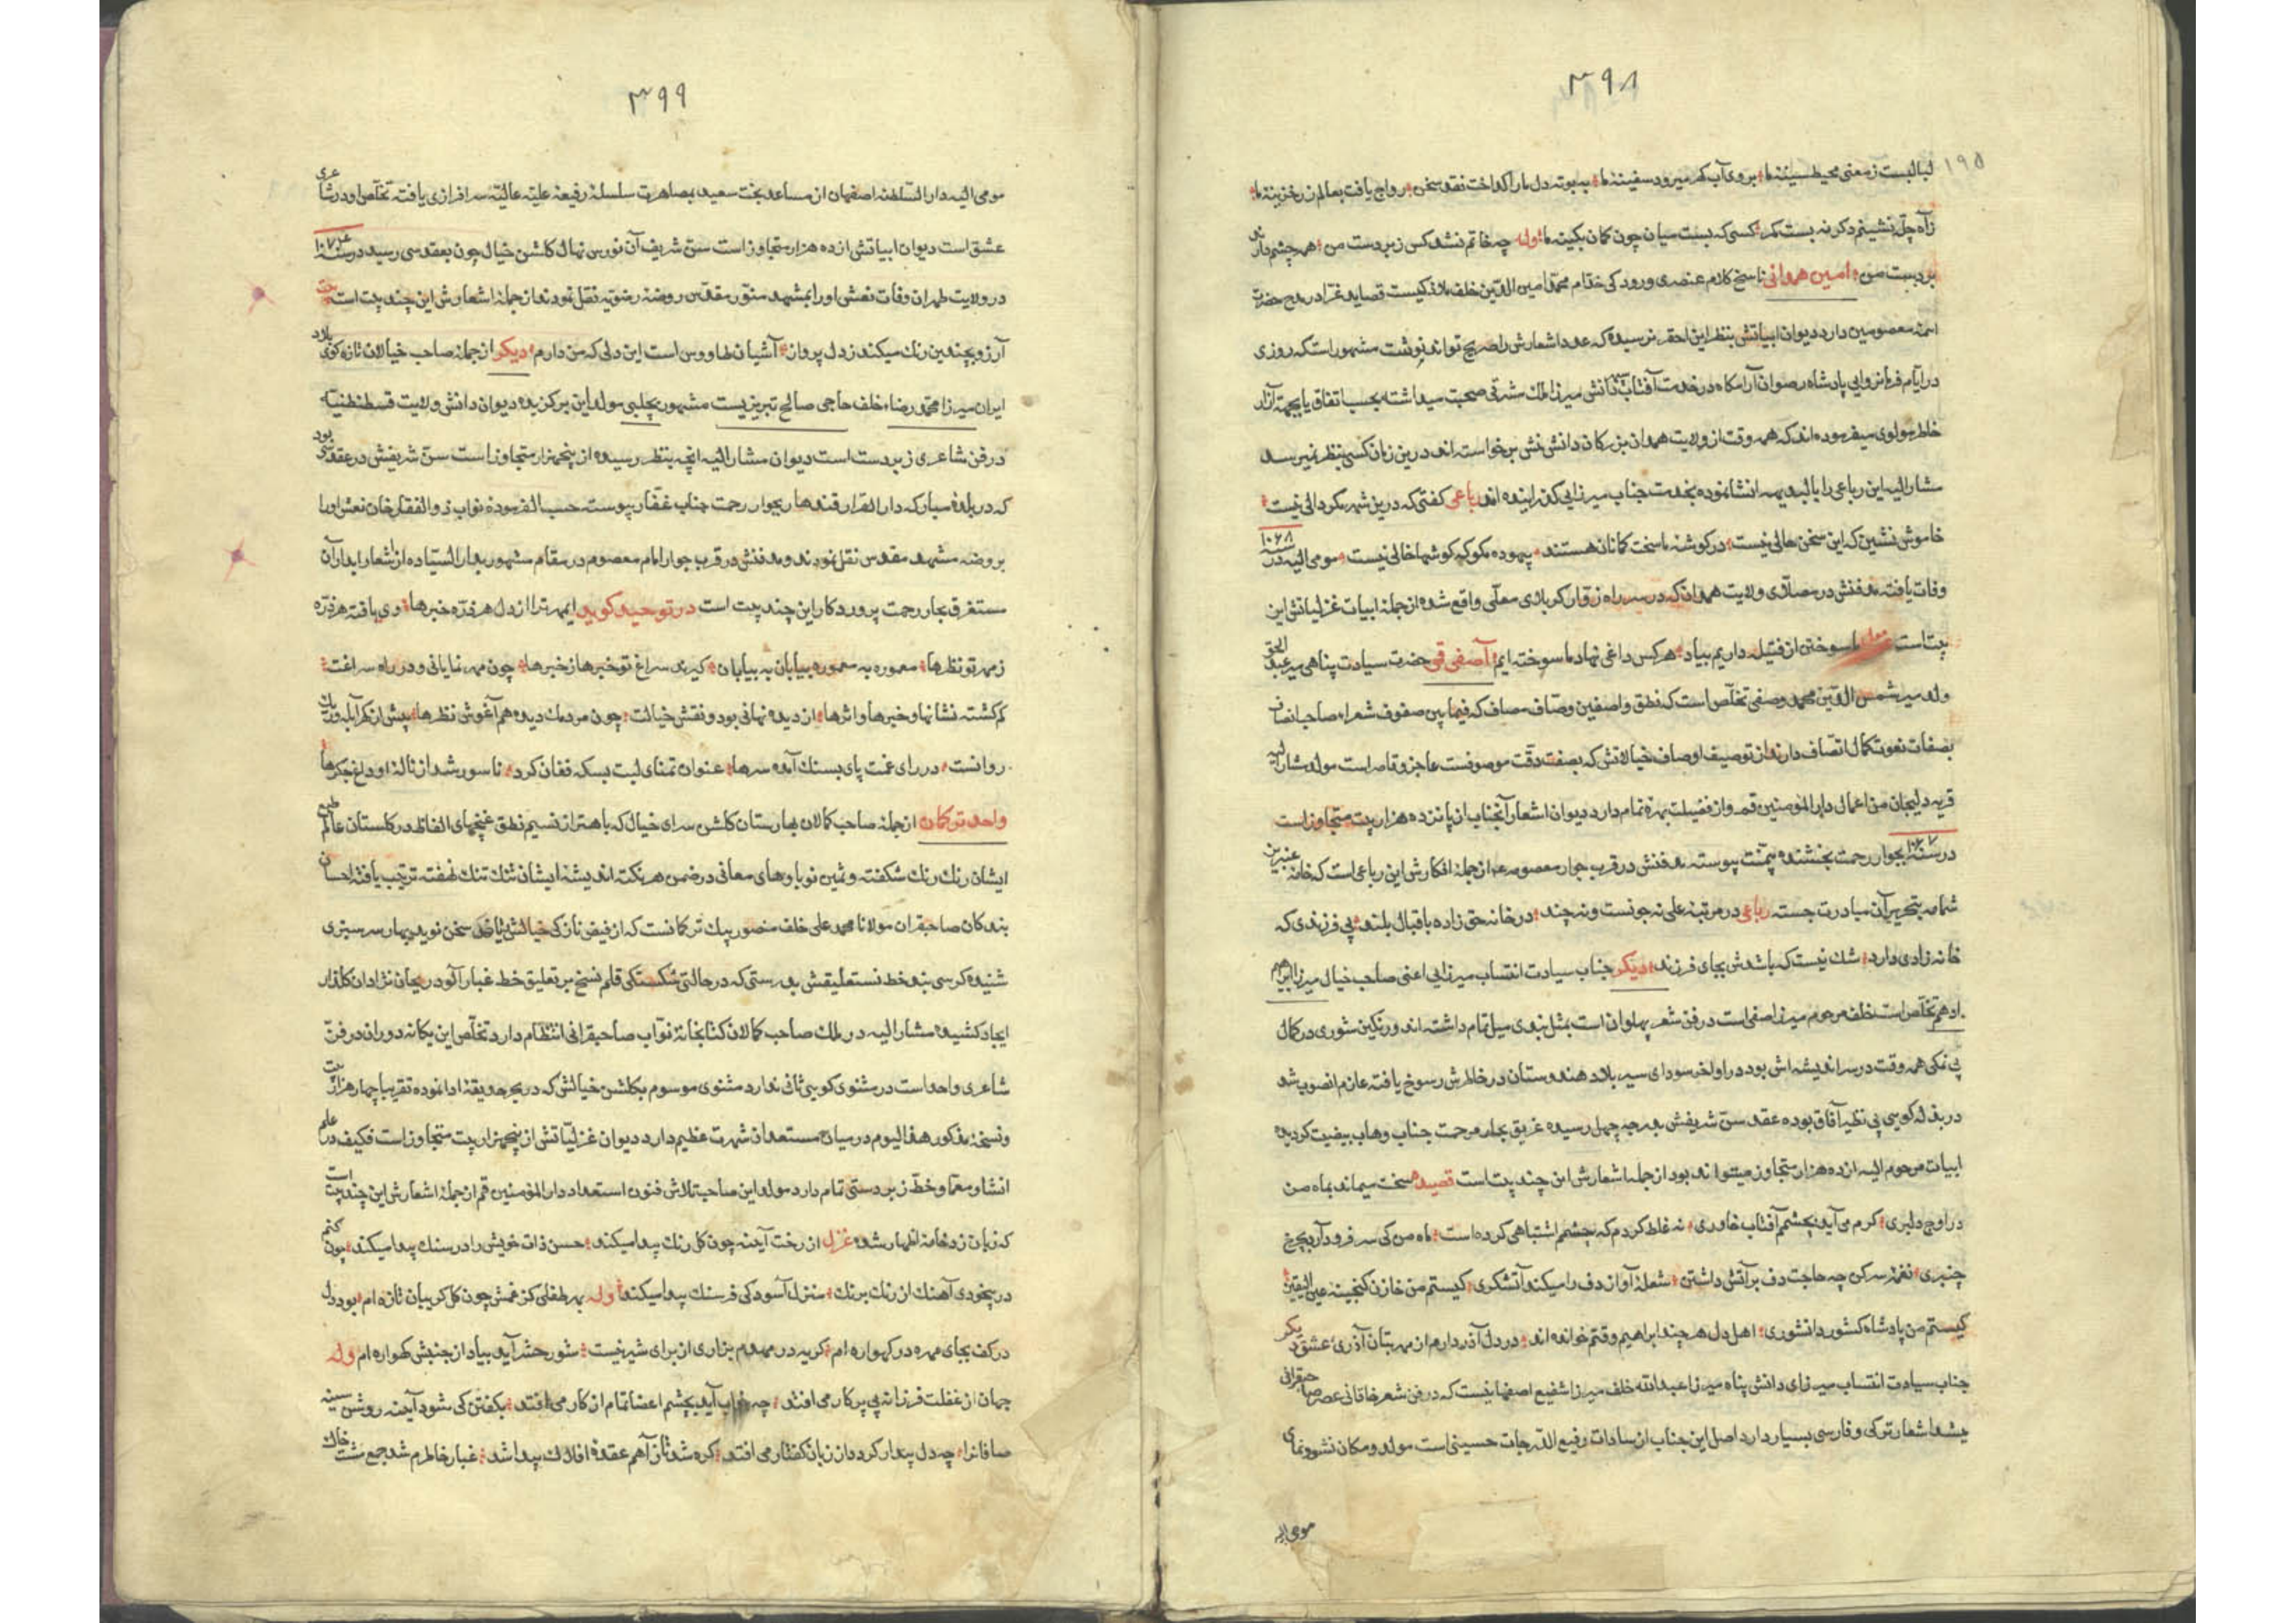 ۳۹۸
۱۹۵
لبالبست ز معنی محیط سینهٔ ما بروی آب کهر میرود سفینهٔ ما به بوته دل ما را کداخت نقد سخن رواج یافت بعالم زر خزینهٔ ما
زآه چله نشینم دکر نه بست کمر کسی که بست میان چون کمان بکینه ما وله چه خاتم نشد کس زبردست من هر چشم دارند
بر دست من امین همدانی ناسخ کلام عنصری و رودکی خدام محمد امین الدین خلف کیست قصاید غرا در مدح حضرت
ائمه معصومین دارد دیوان ابیاتش بنظر این احقر نرسیده که عدد اشعارش را صریح تواند نوشت مشهور است که روزی
در ایام فرمانروایی پادشاه رضوان آرامکاه در خدمت آفتاب دانش میرزا ملک مشرقی صحبت میداشته بحسب اتفاق یا بجهة آزار
خاطر مولوی میفرموده اند که همه وقت از ولایت همدان بزرکان دانش منش برخواسته اند درین زمان کسی بنظر نمیرسد
مشارالیه این رباعی را بالبدیهه انشا نموده بخدمت جناب میرزایی کذرانیده اند رباعی کفتی که درین شهر مکر دالی نیست
خاموش نشین که این سخن حالی نیست در کوشهٔ ما سخت کمانان هستند بیهوده مکو که کوشها خالی نیست مومی الیه در سنه ۱۰۶۸
وفات یافته مدفنش در مصلای ولایت همدان که در سر راه زوار کربلای معلی واقع شده از جمله ابیات غزلیاتش این
بیت است ما سوختن از فتیله داریم بیاد هر کس داغی نهاد ما سوخته ایم آصفی قمی حضرت سیادت پناهی میر عبد الحق
ولد میر شمس الدین محمد وصفی تخلص است که نطق واصفین وصاف مصاف که فیما بین صفوف شعراء صاحب انصاف
بصفات نعوت کمال اتصاف دارند از توصیف اوصاف خیالاتش که بصفت دقت موصوفست عاجز و قاصر است مولد مشار الیه
قریه دلیجان من اعمال دار المؤمنین قم و از فضیلت بهرهٔ تمام دارد دیوان اشعار آنجناب از پانزده هزار بیت متجاوز است
در سنه ۱۰۶۷ بجوار رحمت بخشنده بیمنت پیوسته مدفنش در قرب جوار معصومه از جمله افکارش این رباعی است که خامه عنبرین
شمامه بتحریر آن مبادرت جسته رباعی در مرتبه علی نه چونست و نه چند در خانه حق زاده باقبال بلند بی فرزندی که
خانه زادی دارد شک نیست که باشدش بجای فرزند دیکر جناب سیادت انتساب میرزایی اعنی صاحب خیال میرزا ابراهیم
ادهم تخلص است خلف مرحوم میرزا صفی است در فن شعر پهلوان است بمثل بندی میل تمام داشته اند و رنکین شوری در کمال
بی نمکی همه وقت در سر اندیشه اش بود در اواخر سودای سیر بلاد هندوستان در خاطرش رسوخ یافته عازم انصوب شد
در بذله کویی بی نظیر آفاق بوده عقد سن شریفش بدرجه چهل رسیده غریق بحار مرحمت جناب وهاب بیضنت کردیده
ابیات مرحوم الیه از ده هزار متجاوز میتواند بود از جمله اشعارش این چند بیت است قصیده سخت میماند بماه من
در اوج دلبری کرم می آید بچشمم آفتاب خاوری نه غلط کردم که چشمم اشتباهی کرده است ماه من کی سر فرود آرد بچرخ
چنبری نغمه سر کن چه حاجت دف بر آتش داشتن شعلهٔ آواز دف را میکند آتشکری کیستم من خازن کنجینه عین الیقین
کیستم من پادشاه کشور دانشوری اهل دل هر چند ابراهیم وقتم خوانده اند در دل آذر دارم از مهر بتان آذری عشق دیکر
جناب سیادت انتساب میرزای دانش پناه میرزا عبدالله خلف میرزا شفیع اصفهانیست که در فن شعر خاقانی عصر صاحبقرانی
میشد اشعار ترکی و فارسی بسیار دارد اصل این جناب از سادات رفیع الدرجات حسینی است مولد و مکان نشو و نمای
مومی الیه
۳۹۹
مومی الیه دار السلطنه اصفهان از مساعد بخت سعید بمصاهرت سلسلهٔ رفیعهٔ علیّهٔ عالیّه سرافرازی یافته تخلص او در شاعری
عشق است دیوان ابیاتش از ده هزار متجاوز است سن شریف آن نورس نهال کلشن خیال چون بعقد سی رسید در سنه
در ولایت طهران وفات نعش او را بمشهد منور مقدس روضه رضویه نقل نمودند از جمله اشعارش این چند بیت است بیت
آرزو بچندین رنک میکند ز دل پرواز آشیان طاووس است این دلی که من دارم دیکر از جمله صاحب خیالان تازه کوی بلاد
ایران میرزا محمد رضاء خلف حاجی صالح تبریزیست مشهور بچلبی مولد این برکزیده دیوان دانش ولایت قسطنطنیه
در فن شاعری زبردست است دیوان مشار الیه آنچه بنظر رسیده از پنجهزار متجاوز است سن شریفش در عقد سی بود
که در بلدهٔ مبارکه دار القرار قندهار بجوار رحمت جناب غفار پیوست حسب الفرموده نواب ذو الفقار خان نعش او را
بروضه مشهد مقدس نقل نمودند و مدفنش در قرب جوار امام معصوم در مقام مشهور بدار السیاده از اشعار ابدار آن
مستغرق بحار رحمت پروردکار این چند بیت است در توحید کوید ایمهر ترا از دل هر ذرّه خبرها وی یافته هر ذرّه
ز مهر تو نظرها معموره به معموره بیابان به بیابان کیرند سراغ تو خبرها ز خبرها چون مهر نمایانی و در راه سراغت
کم کشته نشانها و خبرها و اثرها از دیده نهانی بود و نقش خیالت چون مردمک دیده هم آغوش نظرها
روانست در رای غمت پای بسنک آمده سرها عنوان تمنای لبت بسکه فغان کرد ناسور شد از نالهٔ او داغ جکرها
واحد ترکمان از جمله صاحب کمالان بهارستان کلشن سرای خیال که باهتزاز نسیم نطق غنچهای الفاظ در کلستان عالم طبع
ایشان رنک رنک شکفته و ثمین نوباوهای معانی در ضمن هر نکته اندیشهٔ ایشان تنک تنک نهفته ترتیب یافته احسان
بندکان صاحبقران مولانا محمد علی خلف منصور بیک ترکمانست که از فیض نازکی خیالش سخن نوید بهار سرسبزی
شنیده کرسی بند خط نستعلیقش بدرستی که در حالتی شکستکی قلم نسخ بر تعلیق خط غبارآلود ریحان نژادان کلذار
ایجاد کشیده مشار الیه در ملک صاحب کمالان کتابخانهٔ نواب صاحبقرانی انتظام دارد تخلص این یکانه دوران در فن
شاعری واحد است در مثنوی کویی ثانی ندارد مثنوی موسوم بکلشن خیالش که در بحر حدیقه ادا نموده تقریبا چهار هزار بیت
و نسخهٔ مذکور هذا الیوم در میان مستعدان شهرت عظیم دارد دیوان غزلیّاتش از پنجهزار بیت متجاوز است فکیف در علم
انشا و معما و خط زبردستی تمام دارد مولد این صاحب تلاش فنون استعداد دار المؤمنین قم از جمله اشعارش این چند بیت است
که زبان زد خامه اظهار شده غزل از رخت آینه چون کل رنک پیدا میکند حسن ذات خویش را در سنک پیدا میکند چون کنم
در بیخودی آهنک از رنک برنک منزل آسودکی فرسنک پیدا میکند وله پر طفلی کز غمش چون کل کریبان تازه ام بود دل
در کف بجای مهره در کهواره ام کریه در مهدم بزاری از برای شیر نیست شور حشر آید بیاد از جنبش کهواره ام وله
جهان از غفلت فرزانه بی پرکار می افتد چه خواب آید بچشم اعضا تمام از کار می افتد بکفتن کی شود آینه روشن سینه
صافانرا چه دل بیدار کردد از زبان کفتار می افتد کره شد تا ز آهم عقدهٔ افلاک پیدا شد غبار خاطرم شد جمع مشت خاک